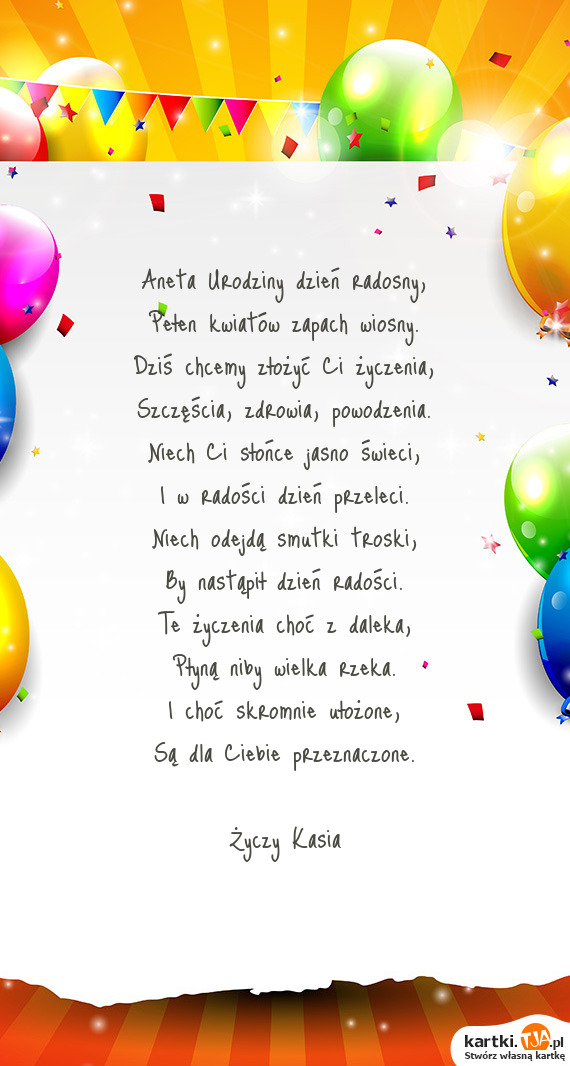 Aneta Urodziny dzień radosny,
Pełen kwiatów zapach wiosny.
Dziś chcemy złożyć Ci życzenia,
Szczęścia, zdrowia, powodzenia.
Niech Ci słońce jasno świeci,
I w radości dzień przeleci.
Niech odejdą smutki troski,
By nastąpił dzień radości.
Te życzenia choć z daleka,
Płyną niby wielka rzeka.
I choć skromnie ułożone,
Są dla Ciebie przeznaczone.
Życzy Kasia
kartki.TJA.pl
Stwórz własną kartkę